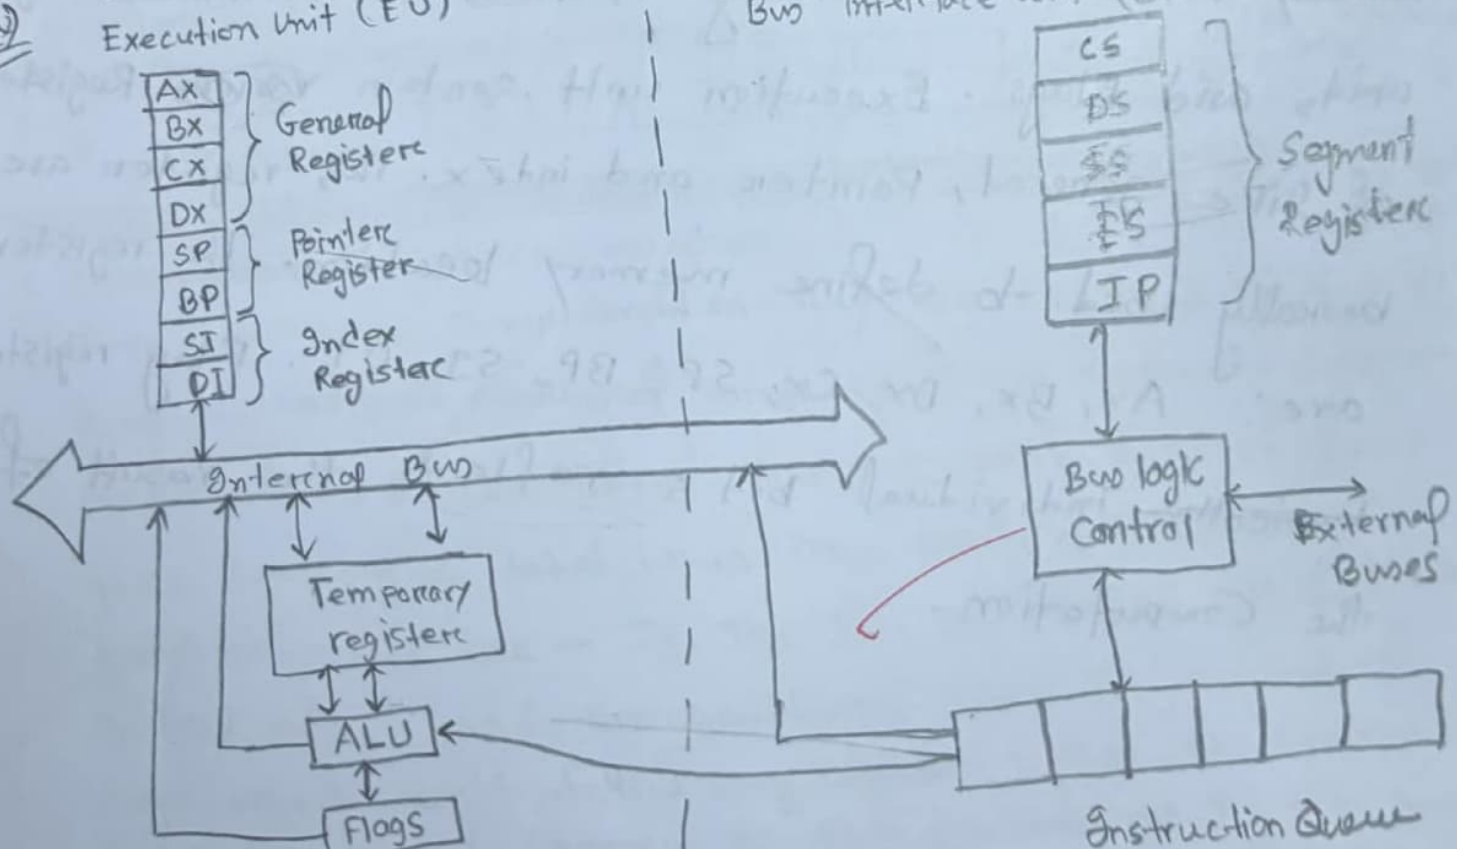 Execution Unit (EU)
Bus Interface
AX
BX
CX
DX
SP
BP
SI
DI
General
Register
Pointer
Register
Index
Register
CS
DS
SS
ES
IP
Segment
Register
Internal Bus
Temporary
register
ALU
Flags
Bus logic
Control
External
Buses
Instruction Queue